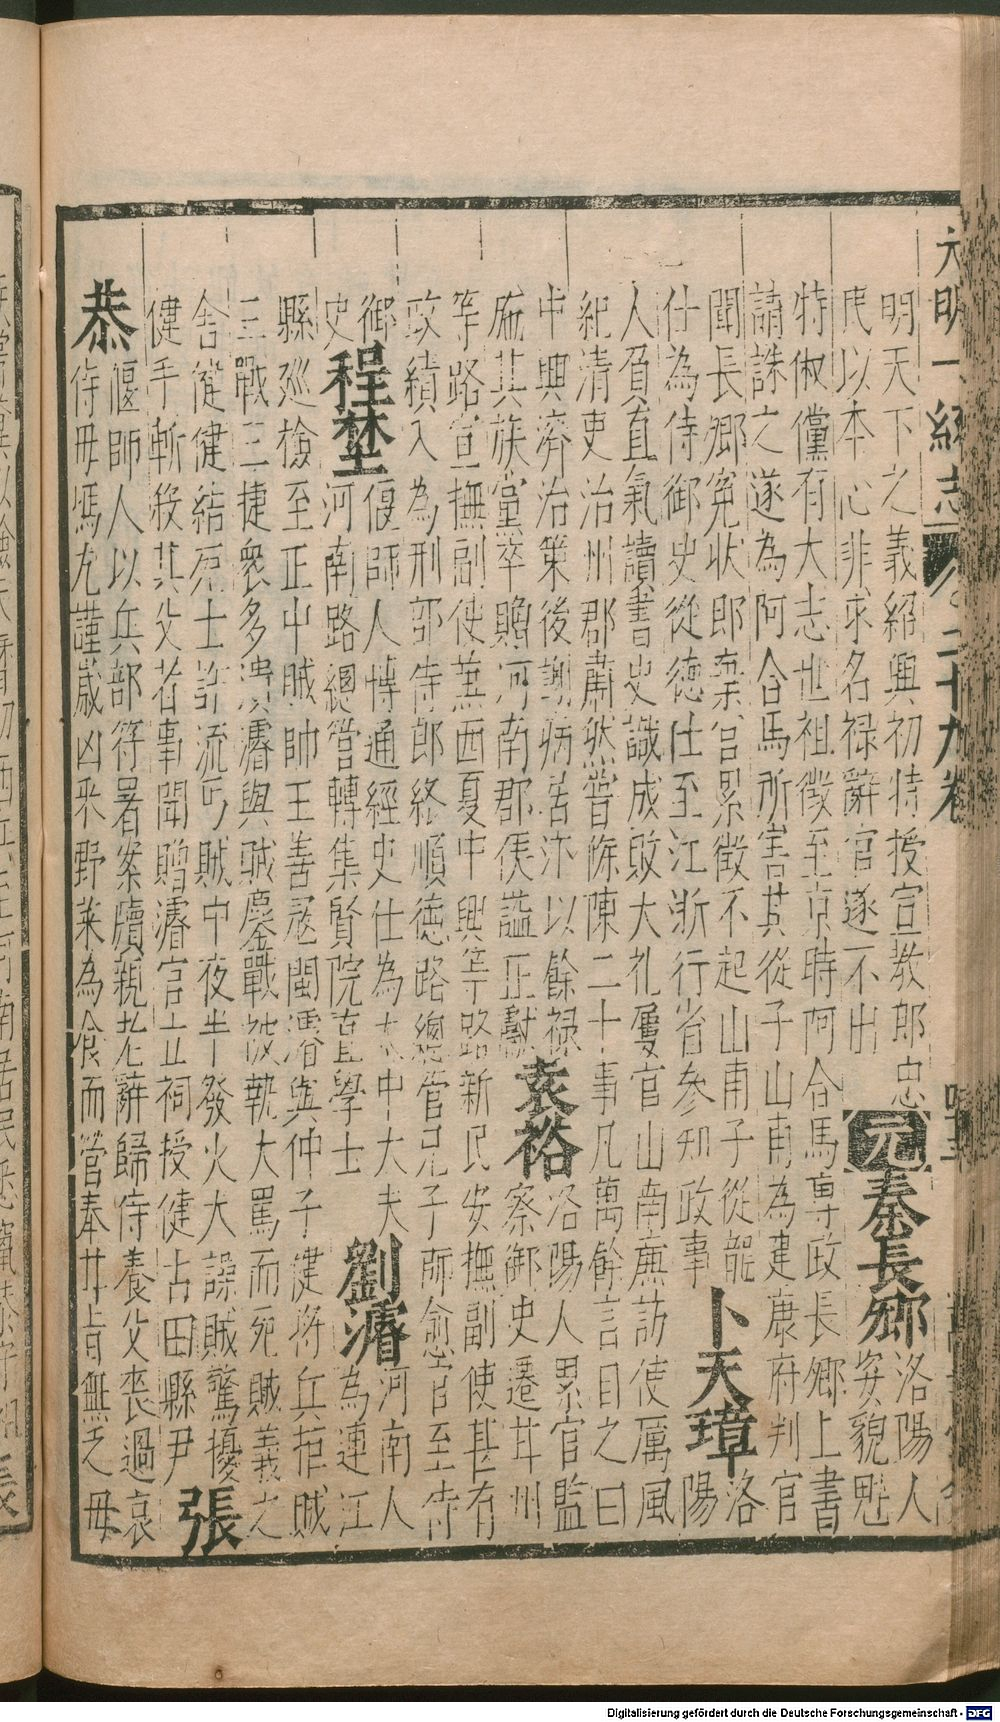 大明一統志 二十九卷
明天下之義紹興初特授宣教郎忠
民以本心非求名禄辭官遂不出
元
秦長卿
洛陽人
姿貌魁
特倜儻有大志世祖徵至京時阿合馬專政長卿上書
請誅之遂為阿合馬所害其從子山甫為建康府判官
聞長卿冤狀即棄官累徵不起山甫子從龍
仕為侍御史從德仕至江浙行省參知政事
卜天璋
洛
陽
人負直氣讀書史識成敗大礼屢官山南廉訪使厲風
紀清吏治州郡肅然嘗條陳二十事凡萬餘言目之曰
中興濟治策後謝病居汴以餘禄
施其族黨卒贈河南郡侯謚正獻
袁裕
洛陽人累官監
察御史遷甘州
等路宣撫副使兼西夏中興等路新民安撫副使甚有
政績入為刑部侍郎終順德路總管兄子師愈官至侍
御
史
程㙺
偃師人博通經史仕為太中大夫
河南路總管轉集賢院直學士
劉濬
河南人
為連江
縣巡檢至正中賊帥王善冦閩濬與仲子健將兵拒賊
三戰三捷衆多潰濬與賊鏖戰被執大罵而死賊義之
舍健健結死士詐流丐賊中夜半發火大譟賊驚擾
健手斬殺其父者事聞贈濬官立祠授健古田縣尹
張
恭
偃師人以兵部符署案牘親老辭歸侍養父喪過哀
侍母馮尤謹歲凶采野菜為食而營奉甘旨無乏母
Digitalisierung gefördert durch die Deutsche Forschungsgemeinschaft - DFG